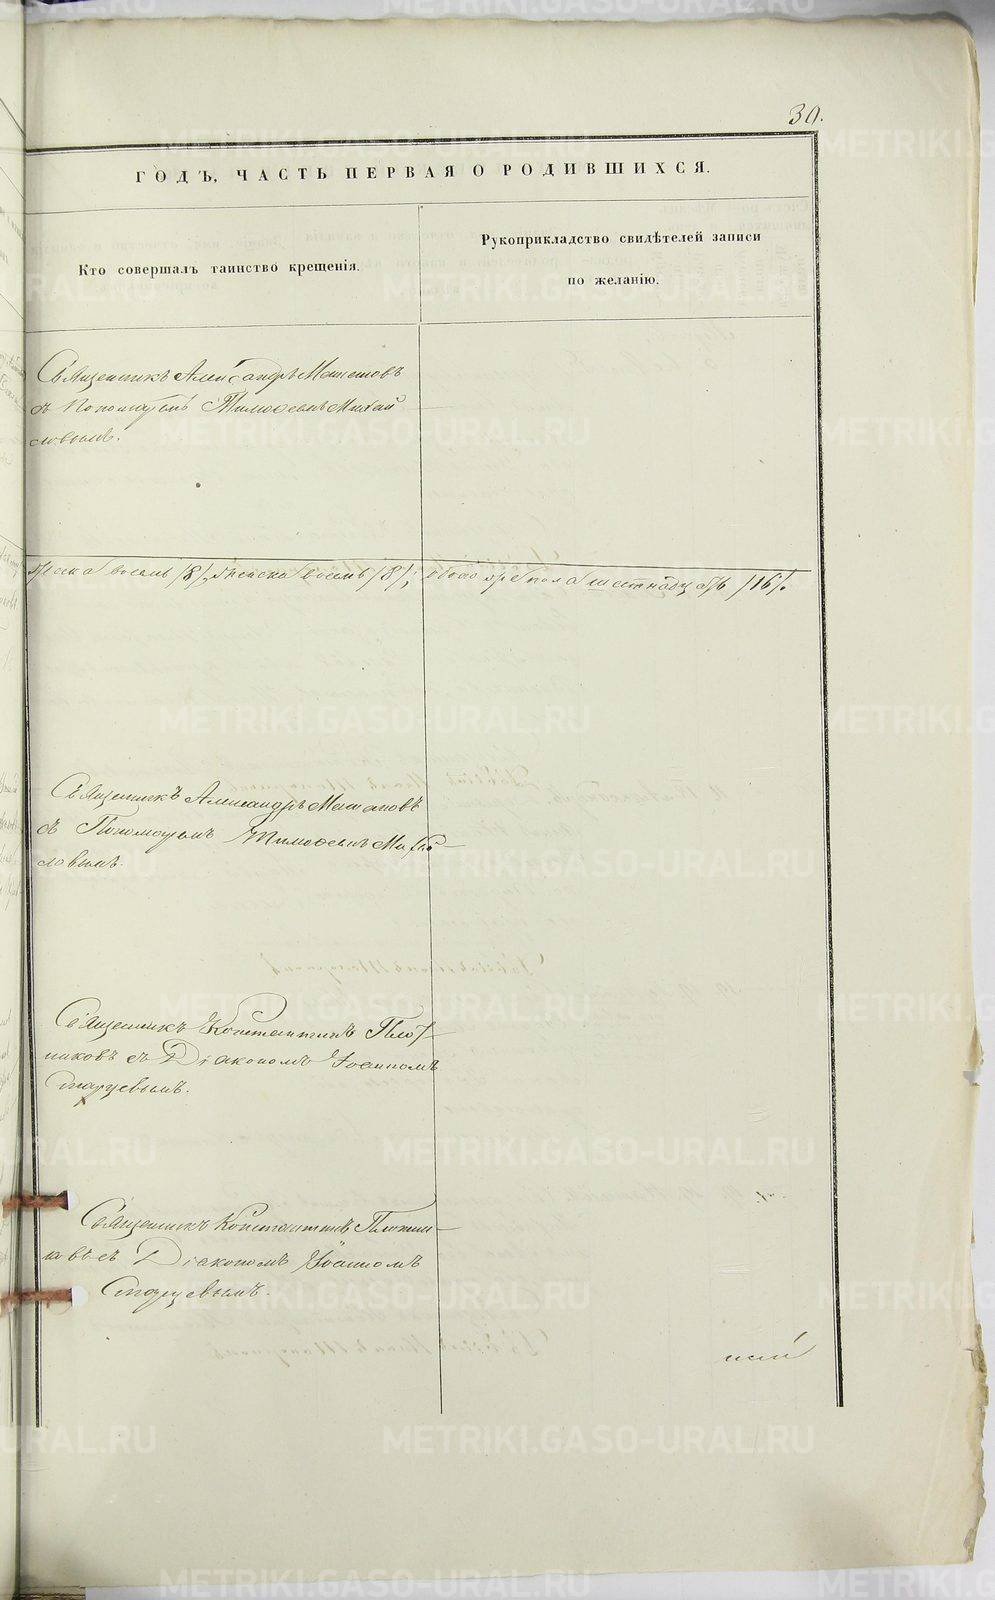 30.
ГОДЪ, ЧАСТЬ ПЕРВАЯ О РОДИВШИХСЯ.
Кто совершалъ таинство крещенія.
Рукоприкладство свидѣтелей записи
по желанію.
Священникъ Александръ
съ Пономаремъ Тимофеемъ Михай
ловымъ.
восемь /8/, женска восемь /8/, обоего пола шестнадцать /16/.
Священникъ Александръ
съ Пономаремъ Тимофеемъ Михай
ловымъ.
Священникъ Константинъ Плот
никовъ съ Діакономъ Іоанномъ
Старцевымъ.
Священникъ Константинъ Плотни
ковъ съ Діакономъ Іоанномъ
Старцевымъ.
METRIKI.GASO-URAL.RU